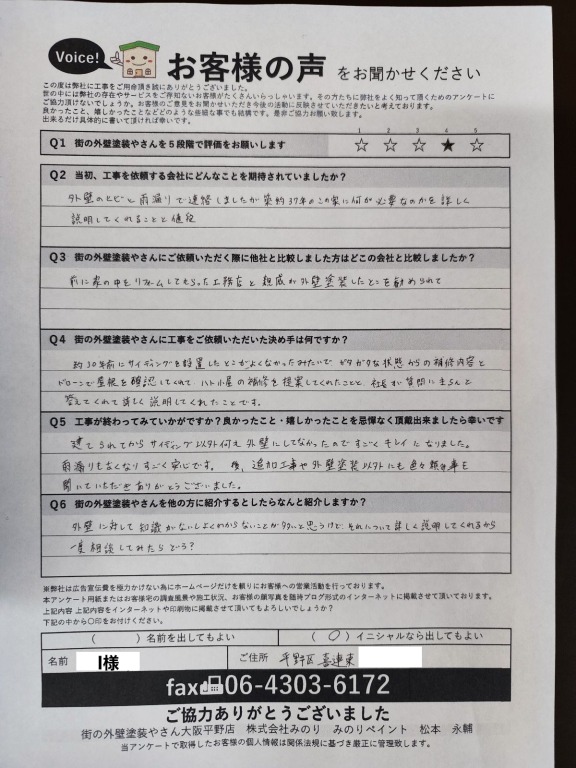 Voice!
お客様の声 をお聞かせください
この度は弊社に工事をご用命頂き誠にありがとうございました。
世の中には弊社の存在やサービスをご存知ないお客様がたくさんいらっしゃいます。その方たちに弊社をよく知って頂くためのアンケートに
ご協力頂けないでしょうか。お客様のご意見をお聞かせいただき今後の活動に反映させていただきたいと考えております。
良かったこと、嬉しかったことなどどのような些細な事でも結構です。是非ご協力お願い致します。
出来るだけ具体的に書いて頂ければ幸いです。
1 2 3 4 5
Q1 街の外壁塗装やさんを5段階で評価をお願いします ☆ ☆ ☆ ★ ☆
Q2 当初、工事を依頼する会社にどんなことを期待されていましたか？
外壁のヒビと雨漏りで連絡しましたが築約37年のこの家に何が必要なのかを詳しく
説明してくれることと値段
Q3 街の外壁塗装やさんにご依頼いただく際に他社と比較しました方はどこの会社と比較しましたか？
前に家の中をリフォームしてもらった工務店と親戚が外壁塗装したとこを勧められて
Q4 街の外壁塗装やさんに工事をご依頼いただいた決め手は何ですか？
約30年前にサイディングを設置したとこがよくなかったみたいで ガタガタな状態からの補修内容と
ドローンで屋根を確認してくれて ハト小屋の補修を提案してくれたことと、社長が質問にきちんと
答えてくれて詳しく説明してくれたことです。
Q5 工事が終わってみていかがですか？良かったこと・嬉しかったことを忌憚なく頂戴出来ましたら幸いです
建てられてからサイディング以外何も外壁にしてなかったのですごくキレイになりました。
雨漏りもなくなりすごく安心です。 後、追加工事や外壁塗装以外にも色々頼み事を
聞いていただきありがとうございました。
Q6 街の外壁塗装やさんを他の方に紹介するとしたらなんと紹介しますか？
外壁に対して知識がないしよくわからないことが多いと思うけど、それについて詳しく説明してくれるから
一度相談してみたらどう？
※弊社は広告宣伝費を極力かけない為にホームページだけを頼りにお客様への営業活動を行っております。
本アンケート用紙またはお客様宅の調査風景や施工状況、お客様の顔写真を随時ブログ形式のインターネットに掲載させて頂いております。
上記内容 上記内容をインターネットや印刷物に掲載させて頂いてもよろしいでしょうか？
下記の中から〇印をお付けください。
（ ）名前を出してもよい （ 〇 ）イニシャルなら出してもよい
名前 I様 ご住所 平野区喜連東
fax 06-4303-6172
ご協力ありがとうございました
街の外壁塗装やさん大阪平野店 株式会社みのり みのりペイント 松本 永輔
当アンケートで取得したお客様の個人情報は関係法規に基づき厳正に管理致します。